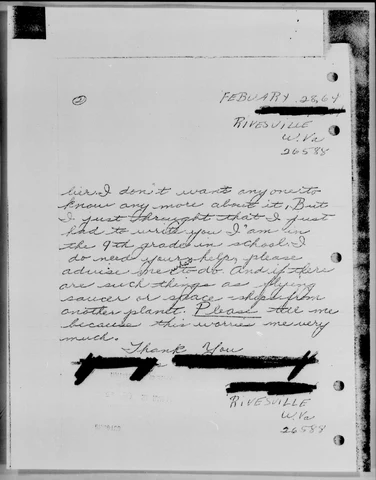 ②
FEBUARY 28, 67
RIVESVILLE
W. Va
26588
I don't want anyone to
know any more about it, But
I just throught that I just
had to write you I am in
the 9th grade in school. I
do need your help, please
advise me to do. And if there
are such things as flying
saucer or space-ships from
another planet. Please tell me
because this worries me very
much.
Thank You
RIVESVILLE
W. Va
26588